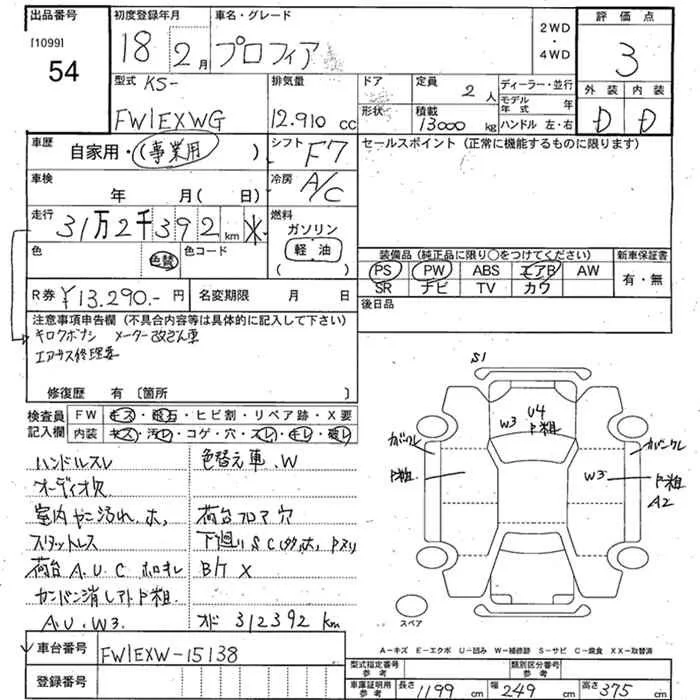 出品番号
[1099]
54
初度登録年月
18 2月
車名・グレード
プロフィア
2WD
・
4WD
評価点
3
外装 内装
D D
型式 KS-
FW1EXWG
排気量
12.910 cc
ドア
形状
定員 2 人
積載 13000 kg
ディーラー・並行
モデル年式 年
ハンドル 左・右
車歴
自家用・(事業用 )
シフト F7
セールスポイント (正常に機能するものに限ります)
車検
年 月( 日)
冷房 A/C
走行
31万2千392 km ※
燃料
ガソリン
軽油
色
色替
色コード
装備品 (純正品に限り○をつけてください)
PS PW ABS エアB AW
SR ナビ TV カワ
新車保証書
有・無
R券 ¥13.290.- 円
名変期限 月 日
後日品
注意事項申告欄 (不具合内容等は具体的に記入して下さい)
キロクボナシ メーター改ざん車
エアサス修理要
修復歴 有 〔箇所 〕
検査員
記入欄
FW キズ・飛石・ヒビ割・リペア跡・X要
内装 キズ・汚レ・コゲ・穴・スレ・キレ・破レ
ハンドルスレ
オーディオ欠
室内ヤニ汚れ、
スタットレス
荷台 A.U.C
AU.W3.
色替え車.W
荷台フロア穴
下廻り SC
B/T X
312392 km
S1
U4
W3 P粗
P粗
W3
P粗
A2
スペア
A-キズ E-エクボ U-凹み W-補修跡 S-サビ C-腐食 XX-取替済
車台番号 FW1EXW-15138
登録番号
型式指定番号
参考
類別区分番号
参考
車庫証明用
参考
長さ 1199 cm
幅 249 cm
高さ 375 cm